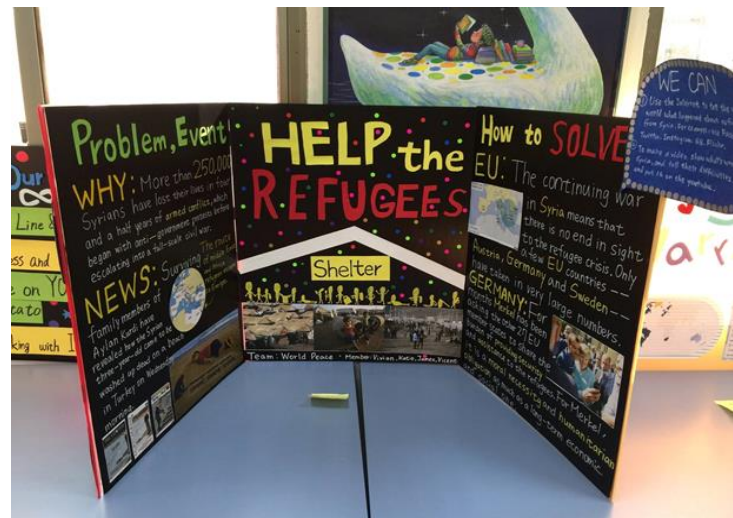 Problem, Event
WHY: More than 250,000
Syrians have lost their lives in four
and a half years of armed conflict, which
began with anti-government protests before
escalating into a full-scale civil war.
NEWS: Surviving
family members of
Aylan Kurdi have
revealed how the Syrian
three-year-old came to be
washed up dead on a beach
in Turkey on Wednesday
morning.
The route
HELP the
REFUGEES.
Shelter
Team: World Peace Member: Vivian, James, Vicent
How to SOLVE
EU: The continuing war
in Syria means that
there is no end in sight
to the refugee crisis. Only
a few EU countries --
Austria, Germany and Sweden --
have taken in very large numbers.
GERMANY: For
months Merkel has been
asking the other EU
member states to share the
burden providing security
and assistance to the refugees. For Merkel,
it is a moral necessity and humanitarian
as much as a long-term economic
WE CAN
Use the Internet to tell the
world what happened about
from Syria. For example: 
Twitter. Instagram.
To make a video,
Syria and tell their difficulties
and put it on the youtube.
Our
Line
ess and
e on YO
tato
king with I